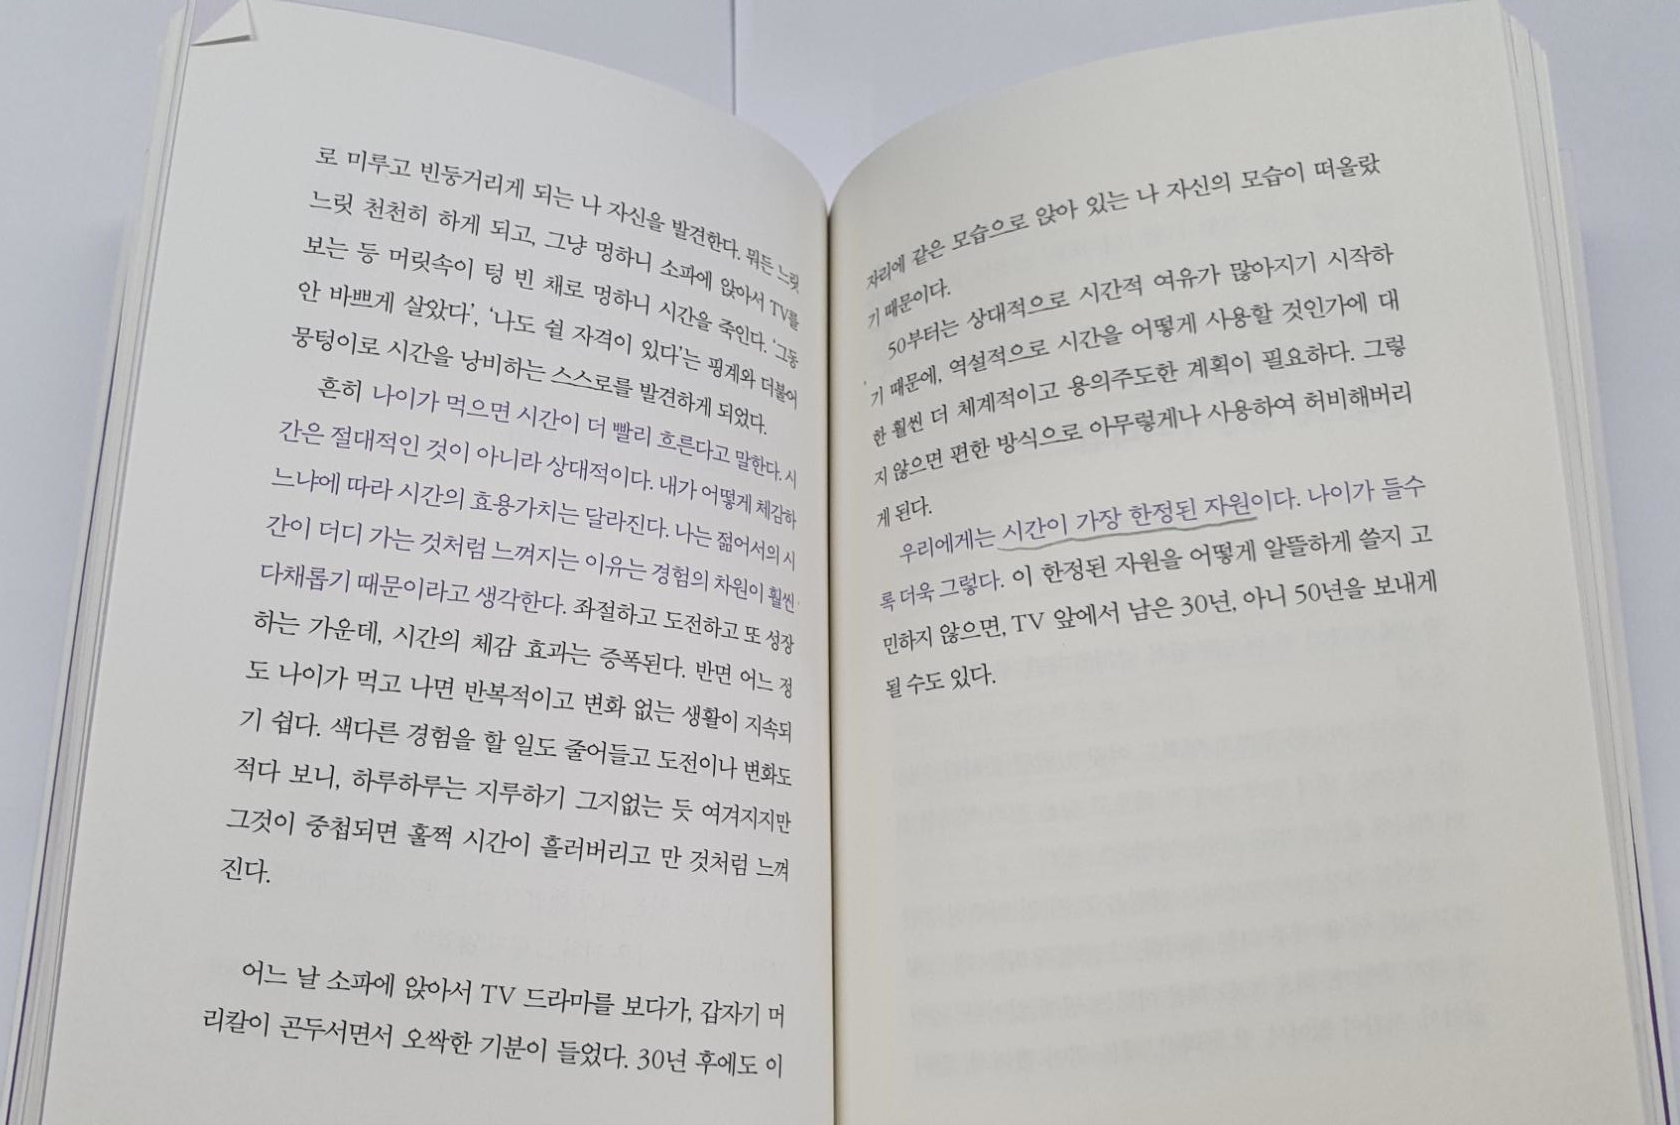 로 미루고 빈둥거리게 되는 나 자신을 발견한다. 뭐든 느릿
느릿 천천히 하게 되고, 그냥 멍하니 소파에 앉아서 TV를
보는 등 머릿속이 텅 빈 채로 멍하니 시간을 죽인다. ‘그동
안 바쁘게 살았다’, ‘나도 쉴 자격이 있다’는 핑계와 더불어
뭉텅이로 시간을 낭비하는 스스로를 발견하게 되었다.
흔히 나이가 먹으면 시간이 더 빨리 흐른다고 말한다. 시
간은 절대적인 것이 아니라 상대적이다. 내가 어떻게 체감하
느냐에 따라 시간의 효용가치는 달라진다. 나는 젊어서의 시
간이 더디 가는 것처럼 느껴지는 이유는 경험의 차원이 훨씬
다채롭기 때문이라고 생각한다. 좌절하고 도전하고 또 성장
하는 가운데, 시간의 체감 효과는 증폭된다. 반면 어느 정
도 나이가 먹고 나면 반복적이고 변화 없는 생활이 지속되
기 쉽다. 색다른 경험을 할 일도 줄어들고 도전이나 변화도
적다 보니, 하루하루는 지루하기 그지없는 듯 여겨지지만
그것이 중첩되면 훌쩍 시간이 흘러버리고 만 것처럼 느껴
진다.
어느 날 소파에 앉아서 TV 드라마를 보다가, 갑자기 머
리칼이 곤두서면서 오싹한 기분이 들었다. 30년 후에도 이
자리에 같은 모습으로 앉아 있는 나 자신의 모습이 떠올랐
기 때문이다.
50부터는 상대적으로 시간적 여유가 많아지기 시작하
기 때문에, 역설적으로 시간을 어떻게 사용할 것인가에 대
한 훨씬 더 체계적이고 용의주도한 계획이 필요하다. 그렇
지 않으면 편한 방식으로 아무렇게나 사용하여 허비해버리
게 된다.
우리에게는 시간이 가장 한정된 자원이다. 나이가 들수
록 더욱 그렇다. 이 한정된 자원을 어떻게 알뜰하게 쓸지 고
민하지 않으면, TV 앞에서 남은 30년, 아니 50년을 보내게
될 수도 있다.